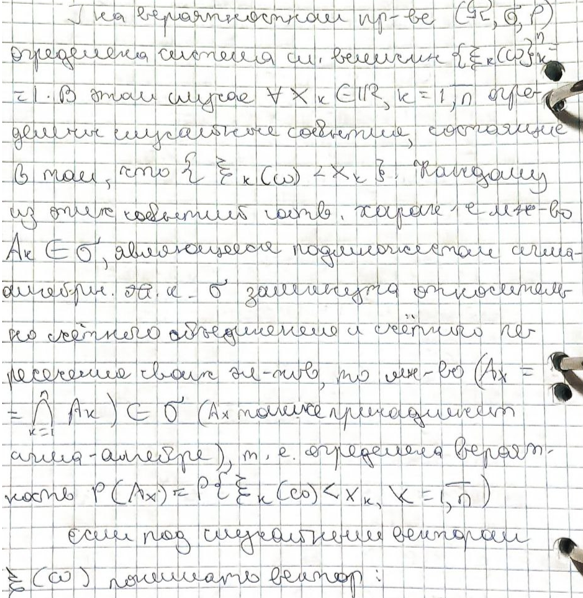 ] на вероятностном пр-ве (Ω, σ, P)
определена система сл. величин {ξₖ(ω)}ⁿₖ₌
=1. В этом случае ∀ xₖ ∈ ℝ, k = 1,n опре-
делены случайные события, состоящие
в том, что { ξₖ(ω) < xₖ }. Каждому
из этих событий соотв. характ-е мн-во
Aₖ ∈ σ, являющееся подмножеством сигма-
алгебры. Т. к. σ замкнута относитель-
но счётного объединения и счётного пе-
ресечения своих эл-тов, то мн-во (Aₓ =
= ⋂ⁿₖ₌₁ Aₖ) ∈ σ (Aₓ также принадлежит
сигма-алгебре), т. е. определена вероят-
ность P(Aₓ) = P{ξₖ(ω) < xₖ, k = 1,n)
Если под случайным вектором
ξ(ω) понимать вектор: